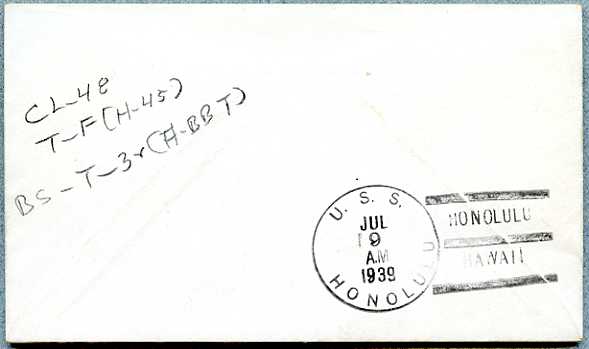 CL-48
T-F(H-45)
BS-T-3r(A-BBT)
U. S. S.
JUL
9
A.M
1939
HONOLULU
HONOLULU
HAWAII